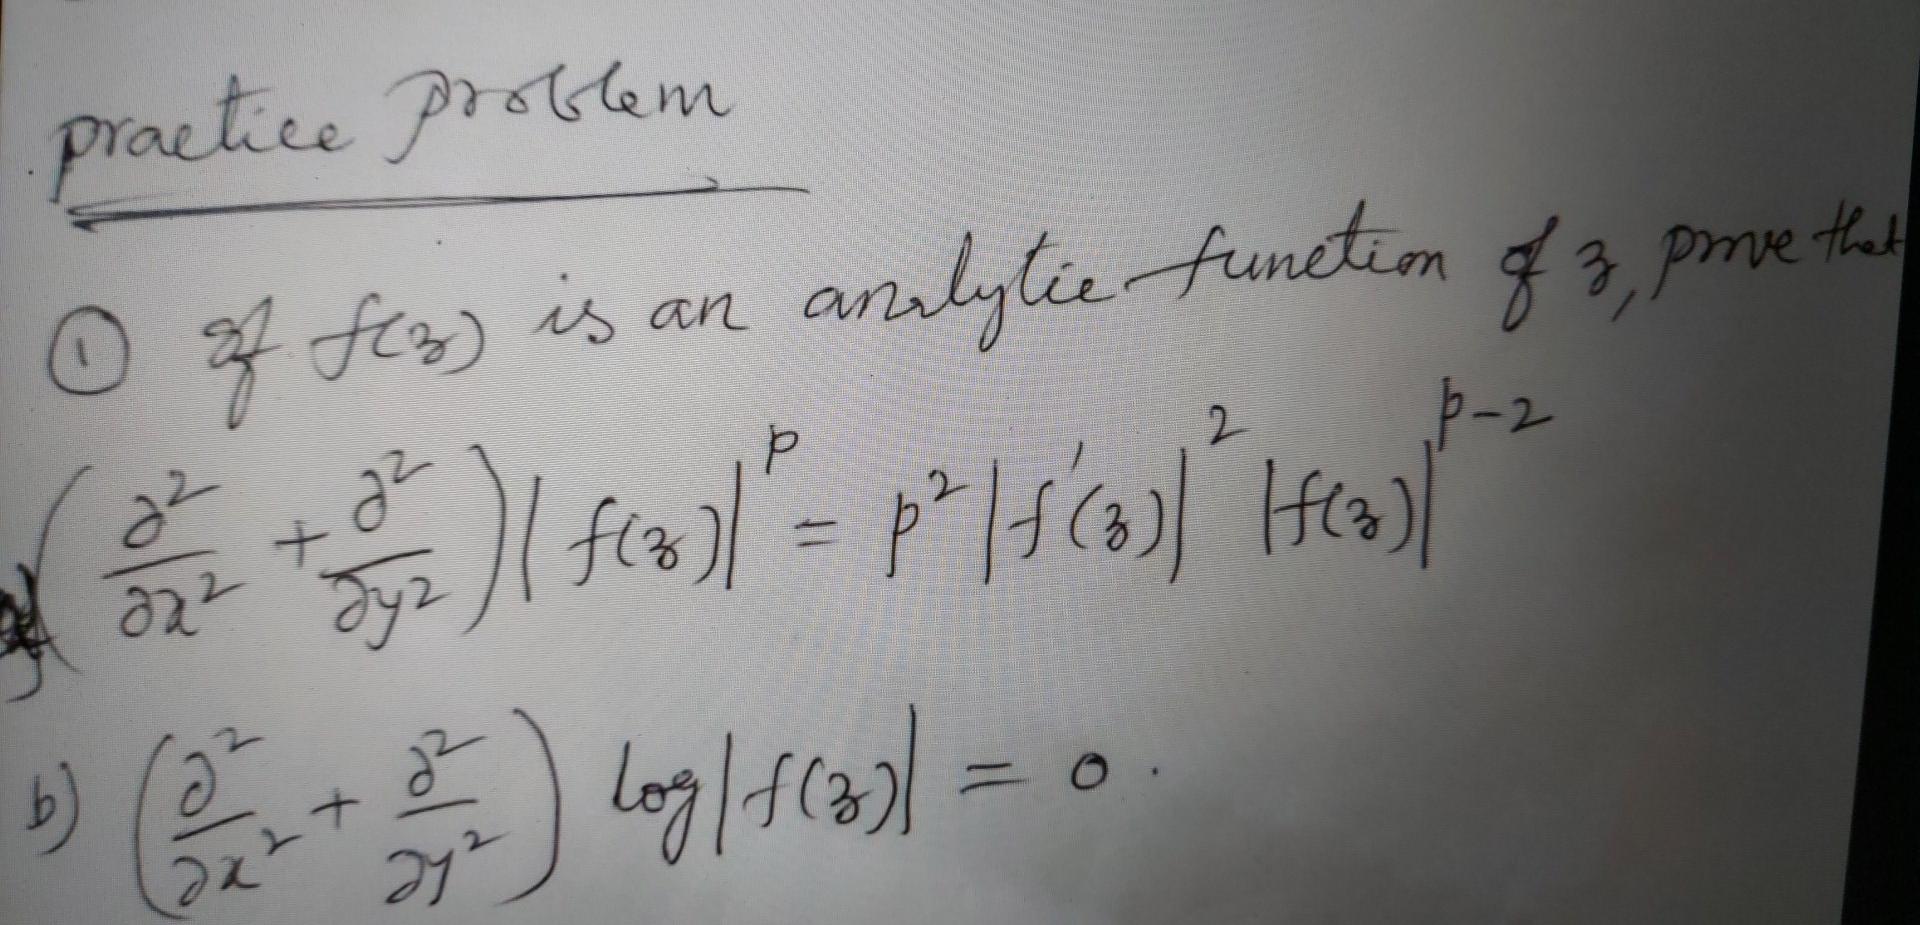 practice problem
① If f(z) is an analytic function of z, prove that
a) (∂²/∂x² + ∂²/∂y²) |f(z)|^p = p² |f'(z)|² |f(z)|^(p-2)
b) (∂²/∂x² + ∂²/∂y²) log|f(z)| = 0.